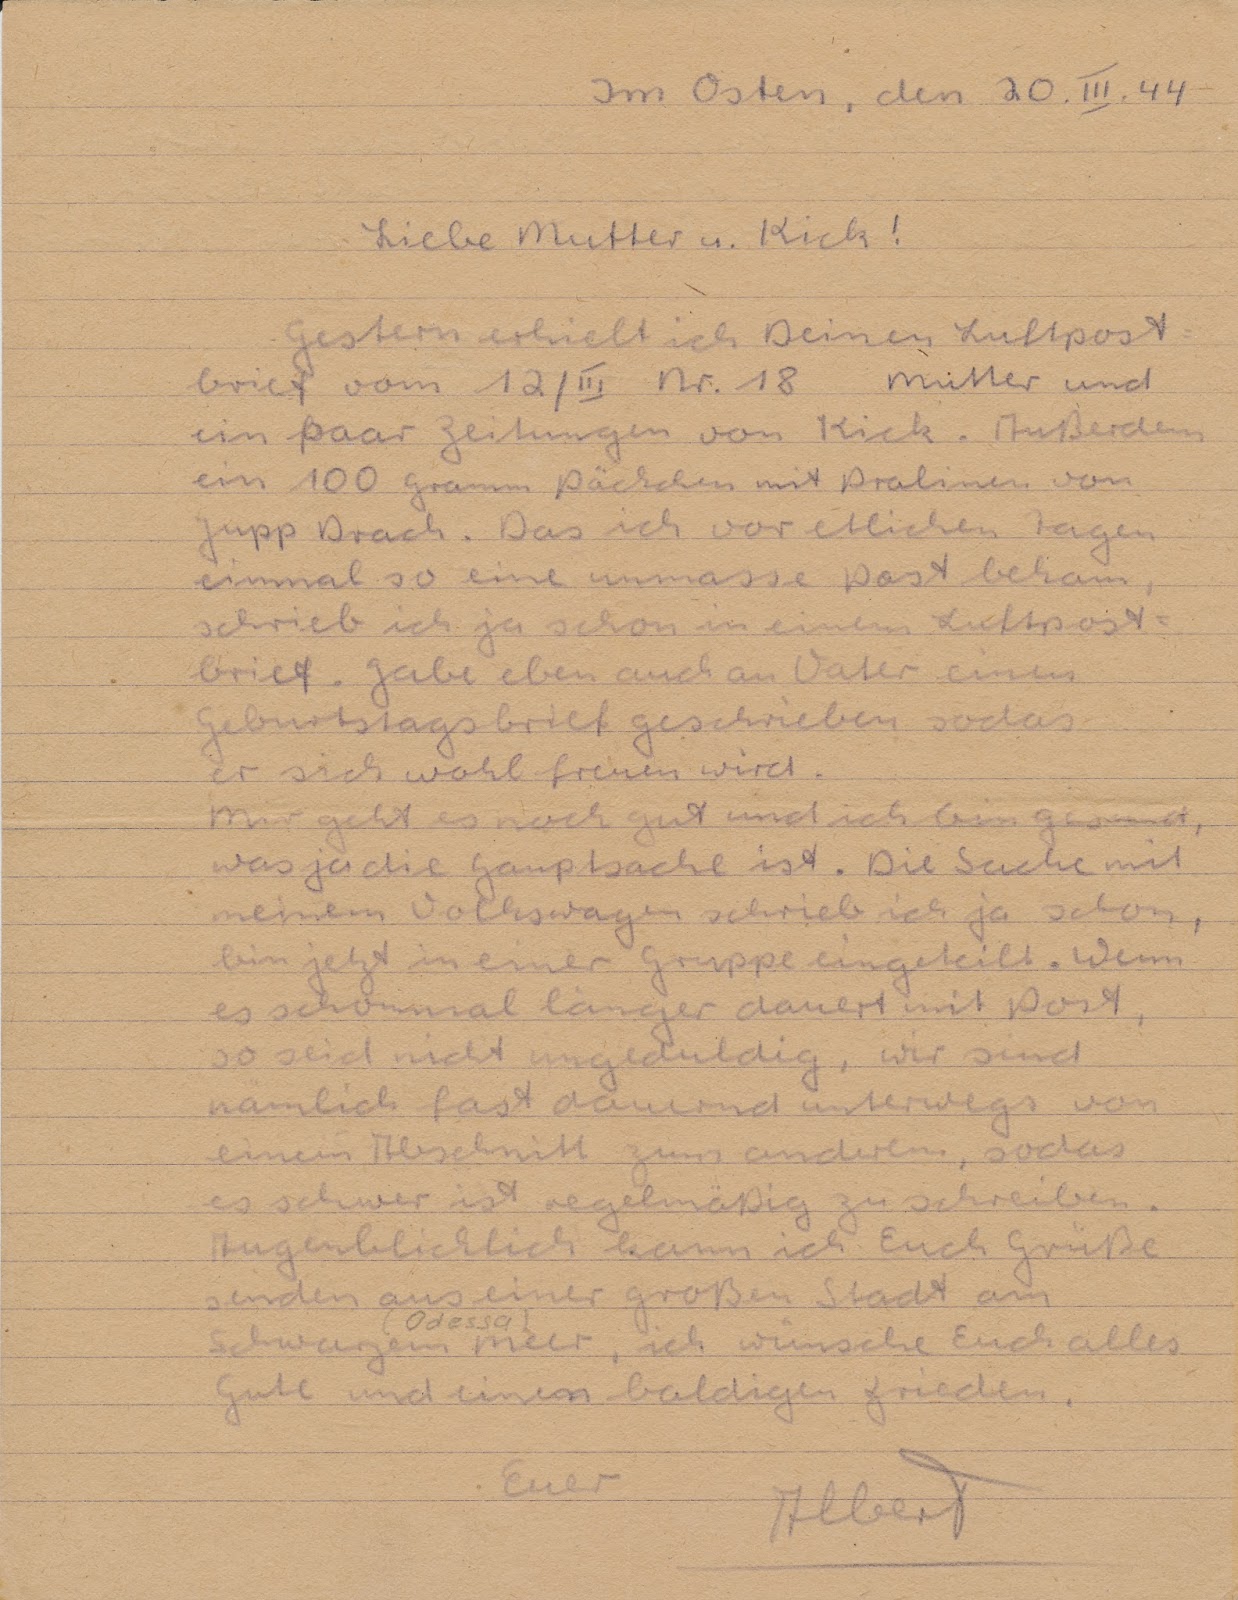 Im Osten, den 20.III.44
Liebe Mutter u. Kick!
Gestern erhielt ich Deinen Luftpost=
brief vom 12/III Nr. 18 Mutter und
ein paar Zeitungen von Kick. Außerdem
ein 100 gramm Päckchen mit Pralinen von
Jupp Drach. Das ich vor etlichen Tagen
einmal so eine unmasse Post bekam,
schrieb ich ja schon in einem Luftpost=
brief. Habe eben auch an Vater einen
Geburtstagsbrief geschrieben sodas
er sich wohl freuen wird.
Mir geht es noch gut und ich bin gesund,
was ja die Hauptsache ist. Die Sache mit
meinem Volkswagen schrieb ich ja schon,
bin jetzt in einer Gruppe eingeteilt. Wenn
es schonmal länger dauert mit Post,
so seid nicht ungeduldig, wir sind
nämlich fast dauernd unterwegs von
einem Abschnitt zum anderem, sodas
es schwer ist regelmäßig zu schreiben.
Augenblicklich kann ich Euch Grüße
senden aus einer großen Stadt am
(Odessa)
Schwarzem Meer, ich wünsche Euch alles
Gute und einen baldigen Frieden.
Euer Albert